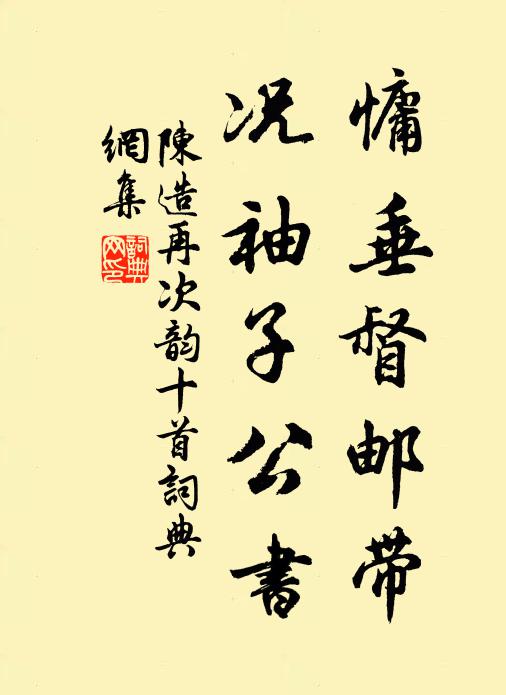 慵垂督邮带
况袖子公書
陳造再次韵十首詞典
網集
詞典网印